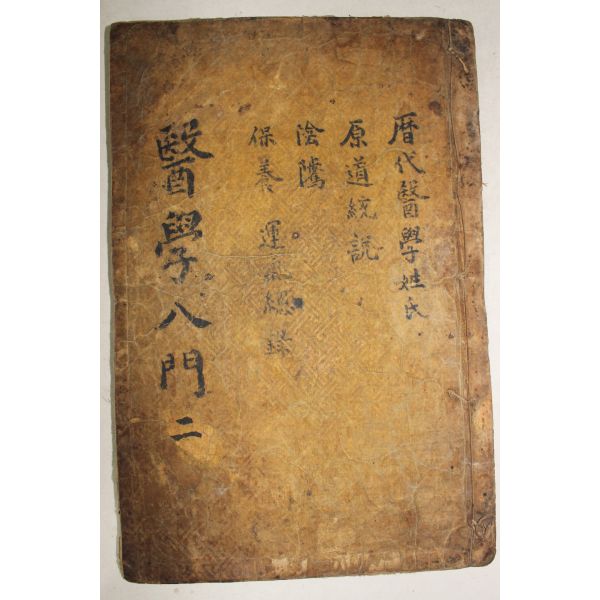 曆代醫學姓氏
原道統說
陰隲
保養 運氣總錄
醫學入門 二